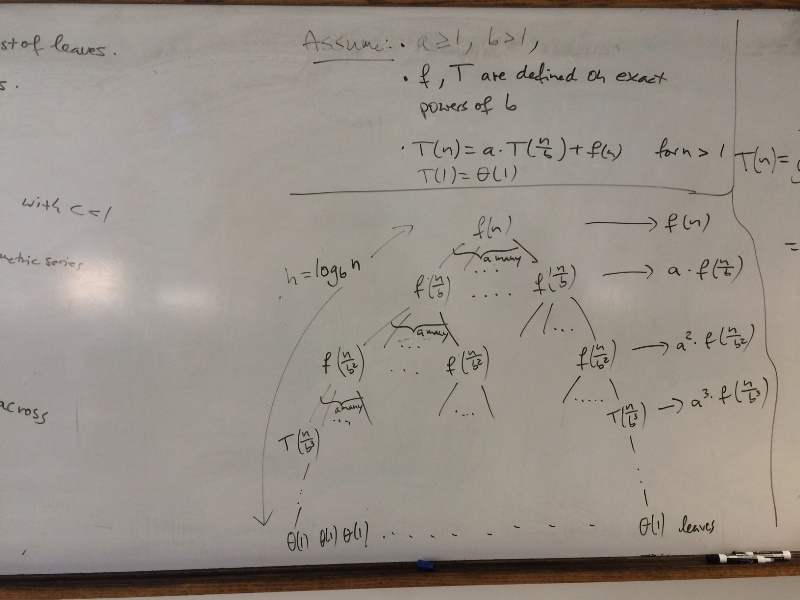 st of leaves.
s.
with c<1
metric series
across
Assume: • a≥1, b>1,
• f, T are defined on exact
powers of b
• T(n) = a·T(n/b) + f(n) for n > 1
T(1) = θ(1)
T(n) =
=
h = log_b n
f(n) → f(n)
a many
f(n/b) .... f(n/b) → a·f(n/b)
a many
f(n/b²) ... f(n/b²) f(n/b²) → a²·f(n/b²)
a many
T(n/b³) T(n/b³) → a³·f(n/b³)
θ(1) θ(1) θ(1) ..... θ(1) leaves